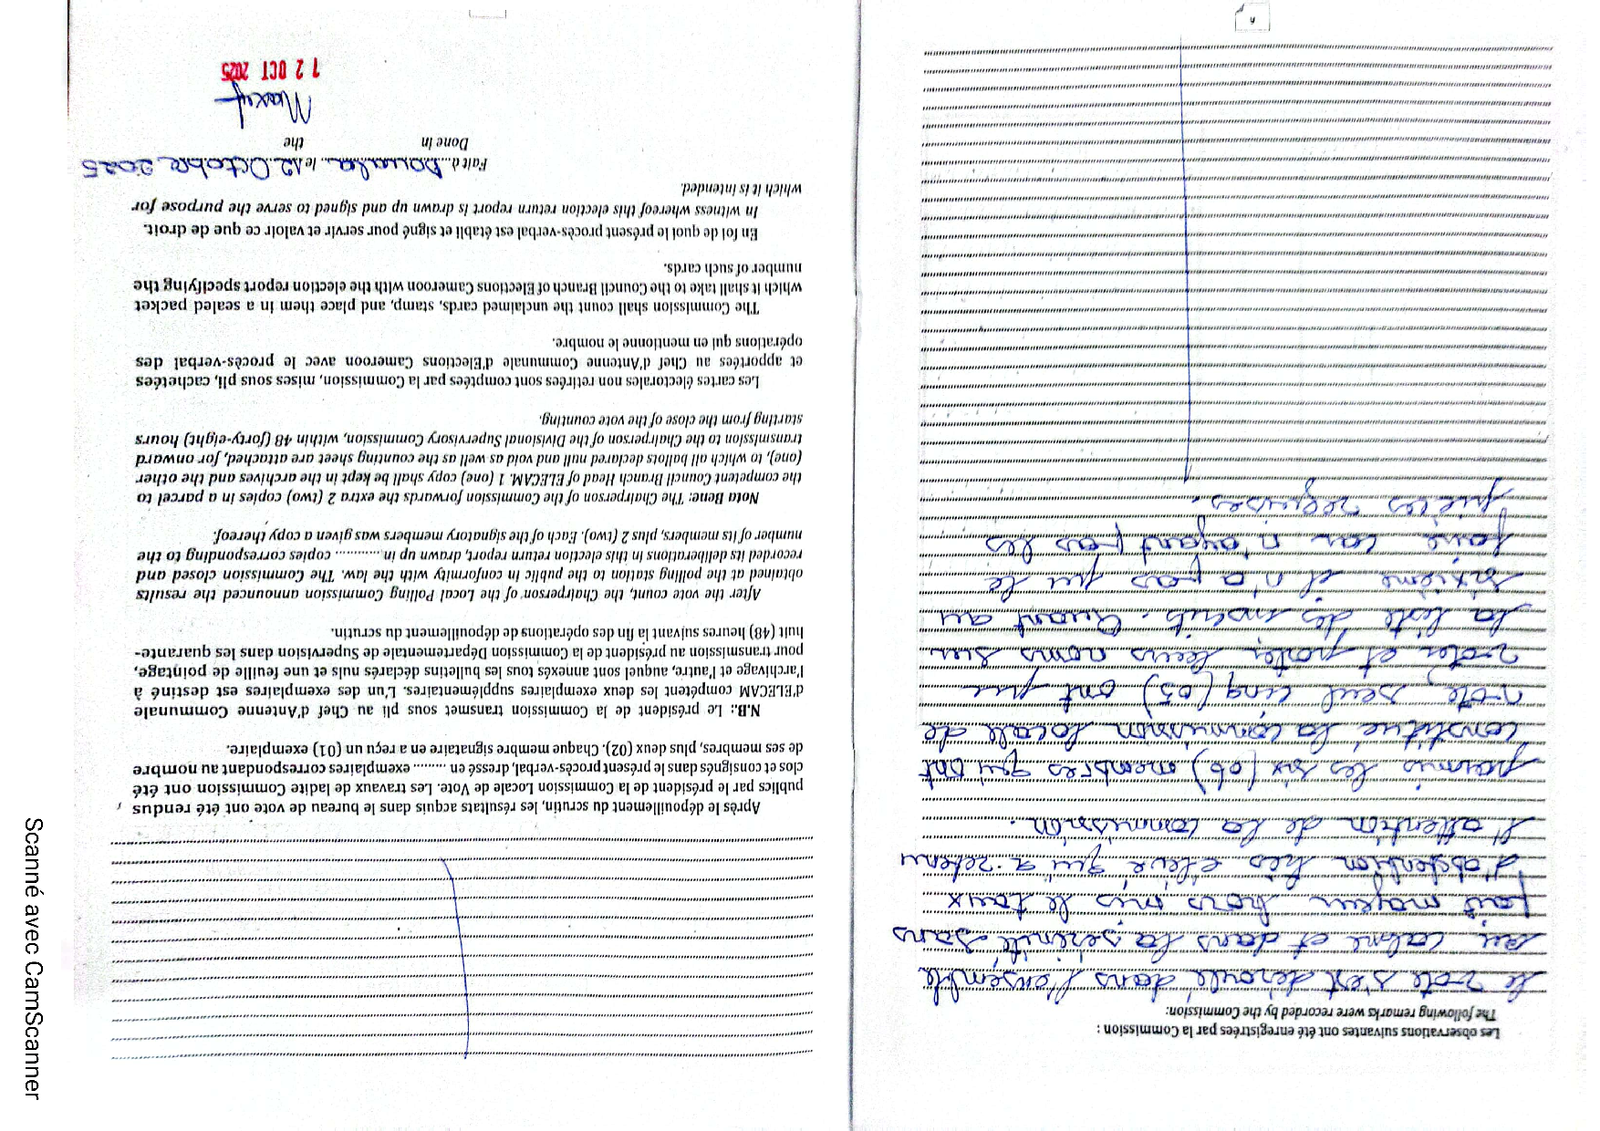 Les observations suivantes ont été enregistrées par la Commission :
The following remarks were recorded by the Commission:
Le vote s'est déroulé dans l'ensemble
au calme et dans la sérénité sans
fait majeur hors mis le taux
d'abstention très élevé qui a retenu
l'attention de la commission.
parmis les six (06) membres qui ont
constitué la commission locale de
vote, seul cinq (05) ont pu
voter et poster leurs noms sur
la liste des inscrits. Quant au
sixième il n'a pas pu le
faire car n'ayant pas les
pièces requises.
Après le dépouillement du scrutin, les résultats acquis dans le bureau de vote ont été rendus
publics par le président de la Commission Locale de Vote. Les travaux de ladite Commission ont été
clos et consignés dans le présent procès-verbal, dressé en ......... exemplaires correspondant au nombre
de ses membres, plus deux (02). Chaque membre signataire en a reçu un (01) exemplaire.
N.B.: Le président de la Commission transmet sous pli au Chef d'Antenne Communale
d'ELECAM compétent les deux exemplaires supplémentaires. L'un des exemplaires est destiné à
l'archivage et l'autre, auquel sont annexés tous les bulletins déclarés nuls et une feuille de pointage,
pour transmission au président de la Commission Départementale de Supervision dans les quarante-
huit (48) heures suivant la fin des opérations de dépouillement du scrutin.
After the vote count, the Chairperson of the Local Polling Commission announced the results
obtained at the polling station to the public in conformity with the law. The Commission closed and
recorded its deliberations in this election return report, drawn up in ............ copies corresponding to the
number of its members, plus 2 (two). Each of the signatory members was given a copy thereof.
Nota Bene: The Chairperson of the Commission forwards the extra 2 (two) copies in a parcel to
the competent Council Branch Head of ELECAM. 1 (one) copy shall be kept in the archives and the other
(one), to which all ballots declared null and void as well as the counting sheet are attached, for onward
transmission to the Chairperson of the Divisional Supervisory Commission, within 48 (forty-eight) hours
starting from the close of the vote counting.
Les cartes électorales non retirées sont comptées par la Commission, mises sous pli, cachetées
et apportées au Chef d'Antenne Communale d'Elections Cameroon avec le procès-verbal des
opérations qui en mentionne le nombre.
The Commission shall count the unclaimed cards, stamp, and place them in a sealed packet
which it shall take to the Council Branch of Elections Cameroon with the election report specifying the
number of such cards.
En foi de quoi le présent procès-verbal est établi et signé pour servir et valoir ce que de droit.
In witness whereof this election return report is drawn up and signed to serve the purpose for
which it is intended.
Fait à.... Douala .. le 12 Octobre 2025
Done in the
12 OCT 2025
Scanné avec CamScanner